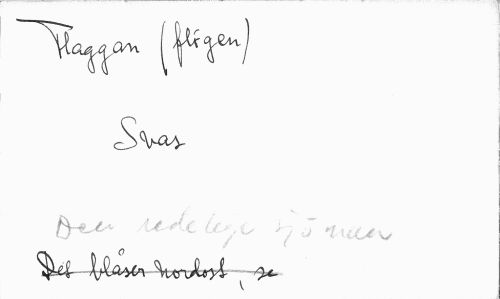 Flaggan (flögen)
Svas
Den redelige sjömann
Det blåser nordost, se